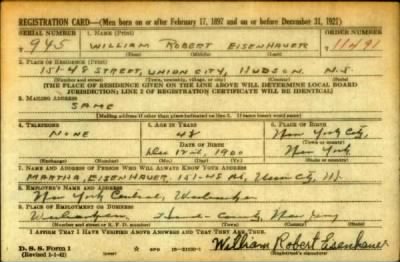 REGISTRATION CARD—(Men born on or after February 17, 1897 and on or before December 31, 1921)
SERIAL NUMBER 1. NAME (Print) ORDER NUMBER
945 WILLIAM ROBERT EISENHAUER 11491
2. PLACE OF RESIDENCE (Print)
151-48 STREET, UNION CITY, HUDSON N.J.
(Number and street) (Town, township, village, or city) (County) (State)
(THE PLACE OF RESIDENCE GIVEN ON THE LINE ABOVE WILL DETERMINE LOCAL BOARD
JURISDICTION; LINE 2 OF REGISTRATION CERTIFICATE WILL BE IDENTICAL)
3. MAILING ADDRESS
SAME
(Mailing address if other than place indicated on line 2. If same insert word same)
4. TELEPHONE 5. AGE IN YEARS 6. PLACE OF BIRTH
NONE New York City,
DATE OF BIRTH (Town or county)
1900 New York
(Exchange) (Number) (Mo.) (Day) (Yr.) (State or country)
7. NAME AND ADDRESS OF PERSON WHO WILL ALWAYS KNOW YOUR ADDRESS
MARTHA EISENHAUER, 151-48 St, Union City, NJ
8. EMPLOYER'S NAME AND ADDRESS
New York Central, Weehawken
9. PLACE OF EMPLOYMENT OR BUSINESS
Weehawken, County, New Jersey
(Number and street or R. F. D. number) (Town) (County) (State)
I AFFIRM THAT I HAVE VERIFIED ABOVE ANSWERS AND THAT THEY ARE TRUE.
D. S. S. Form 1
(Revised 4-1-42) (over) William Robert Eisenhauer
(Registrant's signature)